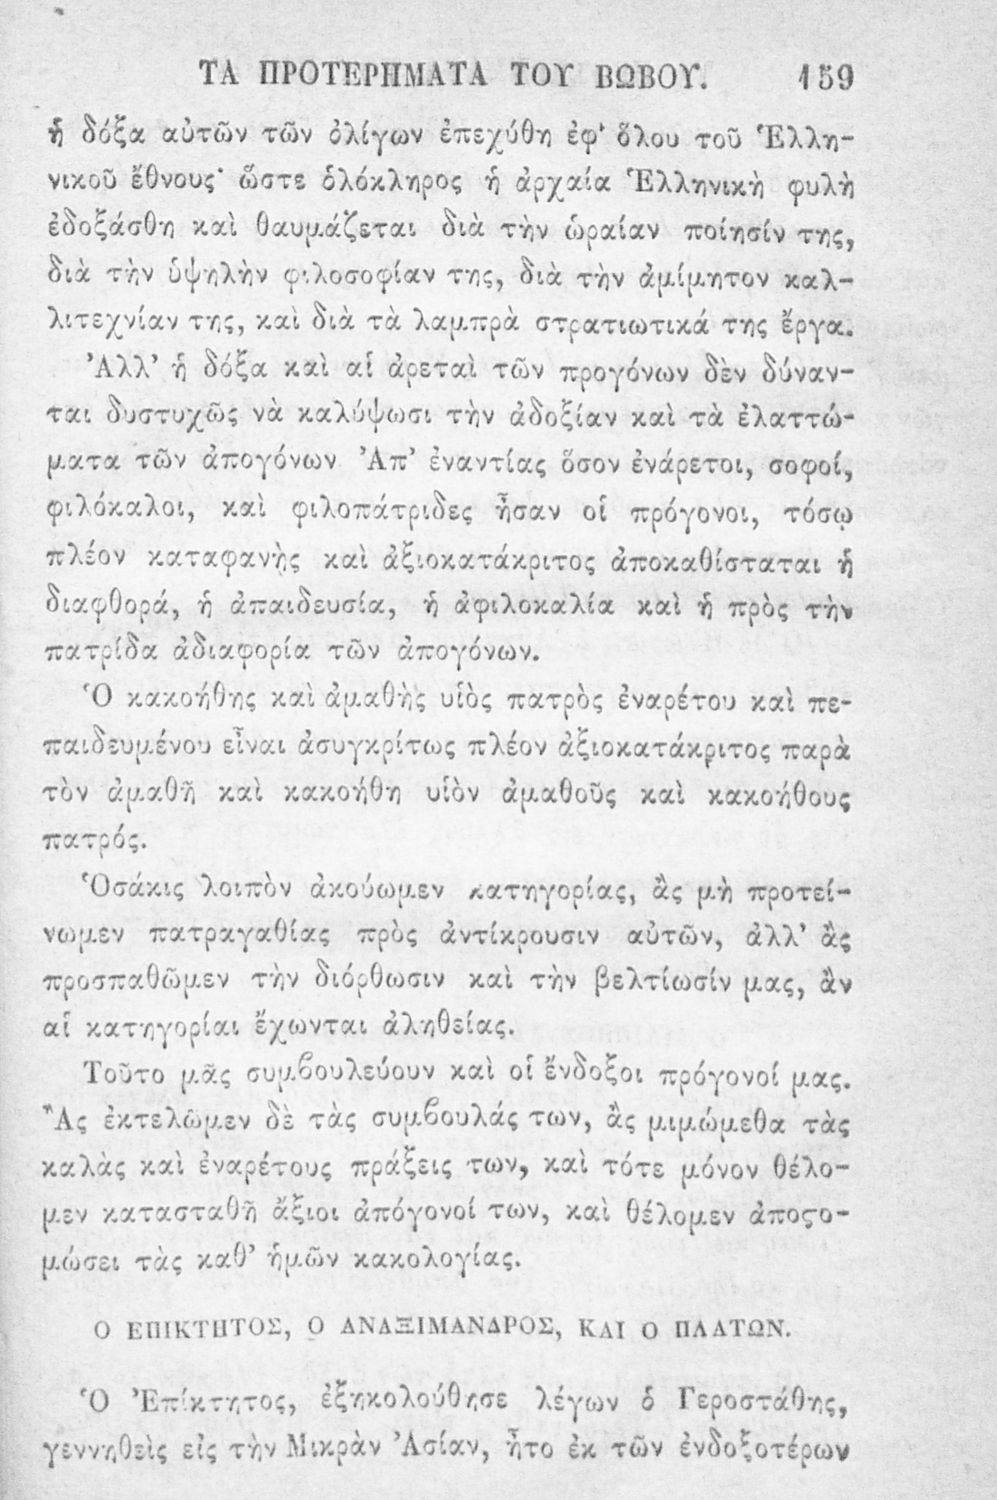 ΤΑ ΠΡΟΤΕΡΗΜΑΤΑ ΤΟΥ ΒΩΒΟΥ. 159
ἡ δόξα αὐτῶν τῶν ὀλίγων ἐπεχύθη ἐφ' ὅλου τοῦ Ἑλλη-
νικοῦ ἔθνους· ὥστε ὁλόκληρος ἡ ἀρχαία Ἑλληνικὴ φυλὴ
ἐδοξάσθη καὶ θαυμάζεται διὰ τὴν ὡραίαν ποίησίν της,
διὰ τὴν ὑψηλὴν φιλοσοφίαν της, διὰ τὴν ἀμίμητον καλ-
λιτεχνίαν της, καὶ διὰ τὰ λαμπρὰ στρατιωτικά της ἔργα.
Ἀλλ' ἡ δόξα καὶ αἱ ἀρεταὶ τῶν προγόνων δὲν δύναν-
ται δυστυχῶς νὰ καλύψωσι τὴν ἀδοξίαν καὶ τὰ ἐλαττώ-
ματα τῶν ἀπογόνων Ἀπ' ἐναντίας ὅσον ἐνάρετοι, σοφοί,
φιλόκαλοι, καὶ φιλοπάτριδες ἦσαν οἱ πρόγονοι, τόσῳ
πλέον καταφανὴς καὶ ἀξιοκατάκριτος ἀποκαθίσταται ἡ
διαφθορά, ἡ ἀπαιδευσία, ἡ ἀφιλοκαλία καὶ ἡ πρὸς τὴν
πατρίδα ἀδιαφορία τῶν ἀπογόνων.
Ὁ κακοήθης καὶ ἀμαθὴς υἱὸς πατρὸς ἐναρέτου καὶ πε-
παιδευμένου εἶναι ἀσυγκρίτως πλέον ἀξιοκατάκριτος παρὰ
τὸν ἀμαθῆ καὶ κακοήθη υἱὸν ἀμαθοῦς καὶ κακοήθους
πατρός.
Ὁσάκις λοιπὸν ἀκούωμεν κατηγορίας, ἂς μὴ προτεί-
νωμεν πατραγαθίας πρὸς ἀντίκρουσιν αὐτῶν, ἀλλ' ἂς
προσπαθῶμεν τὴν διόρθωσιν καὶ τὴν βελτίωσίν μας, ἂν
αἱ κατηγορίαι ἔχωνται ἀληθείας.
Τοῦτο μᾶς συμβουλεύουν καὶ οἱ ἔνδοξοι πρόγονοί μας.
Ἂς ἐκτελῶμεν δὲ τὰς συμβουλάς των, ἂς μιμώμεθα τὰς
καλὰς καὶ ἐναρέτους πράξεις των, καὶ τότε μόνον θέλο-
μεν κατασταθῆ ἄξιοι ἀπόγονοί των, καὶ θέλομεν ἀποϛο-
μώσει τὰς καθ' ἡμῶν κακολογίας.
Ο ΕΠΙΚΤΗΤΟΣ, Ο ΑΝΑΞΙΜΑΝΔΡΟΣ, ΚΑΙ Ο ΠΛΑΤΩΝ.
Ὁ Ἐπίκτητος, ἐξηκολούθησε λέγων ὁ Γεροστάθης,
γεννηθεὶς εἰς τὴν Μικρὰν Ἀσίαν, ἦτο ἐκ τῶν ἐνδοξοτέρων